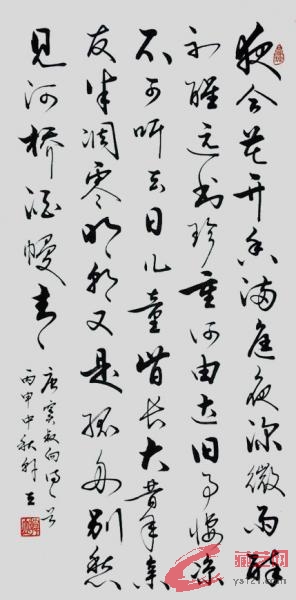 夜合花开香满庭夜深微雨醉
初醒远书珍重何由达旧事悽凉
不可听去日儿童皆长大昔年亲
友半凋零明朝又是孤舟别愁
见河桥酒幔青
唐窦叔向诗一首
丙申中秋